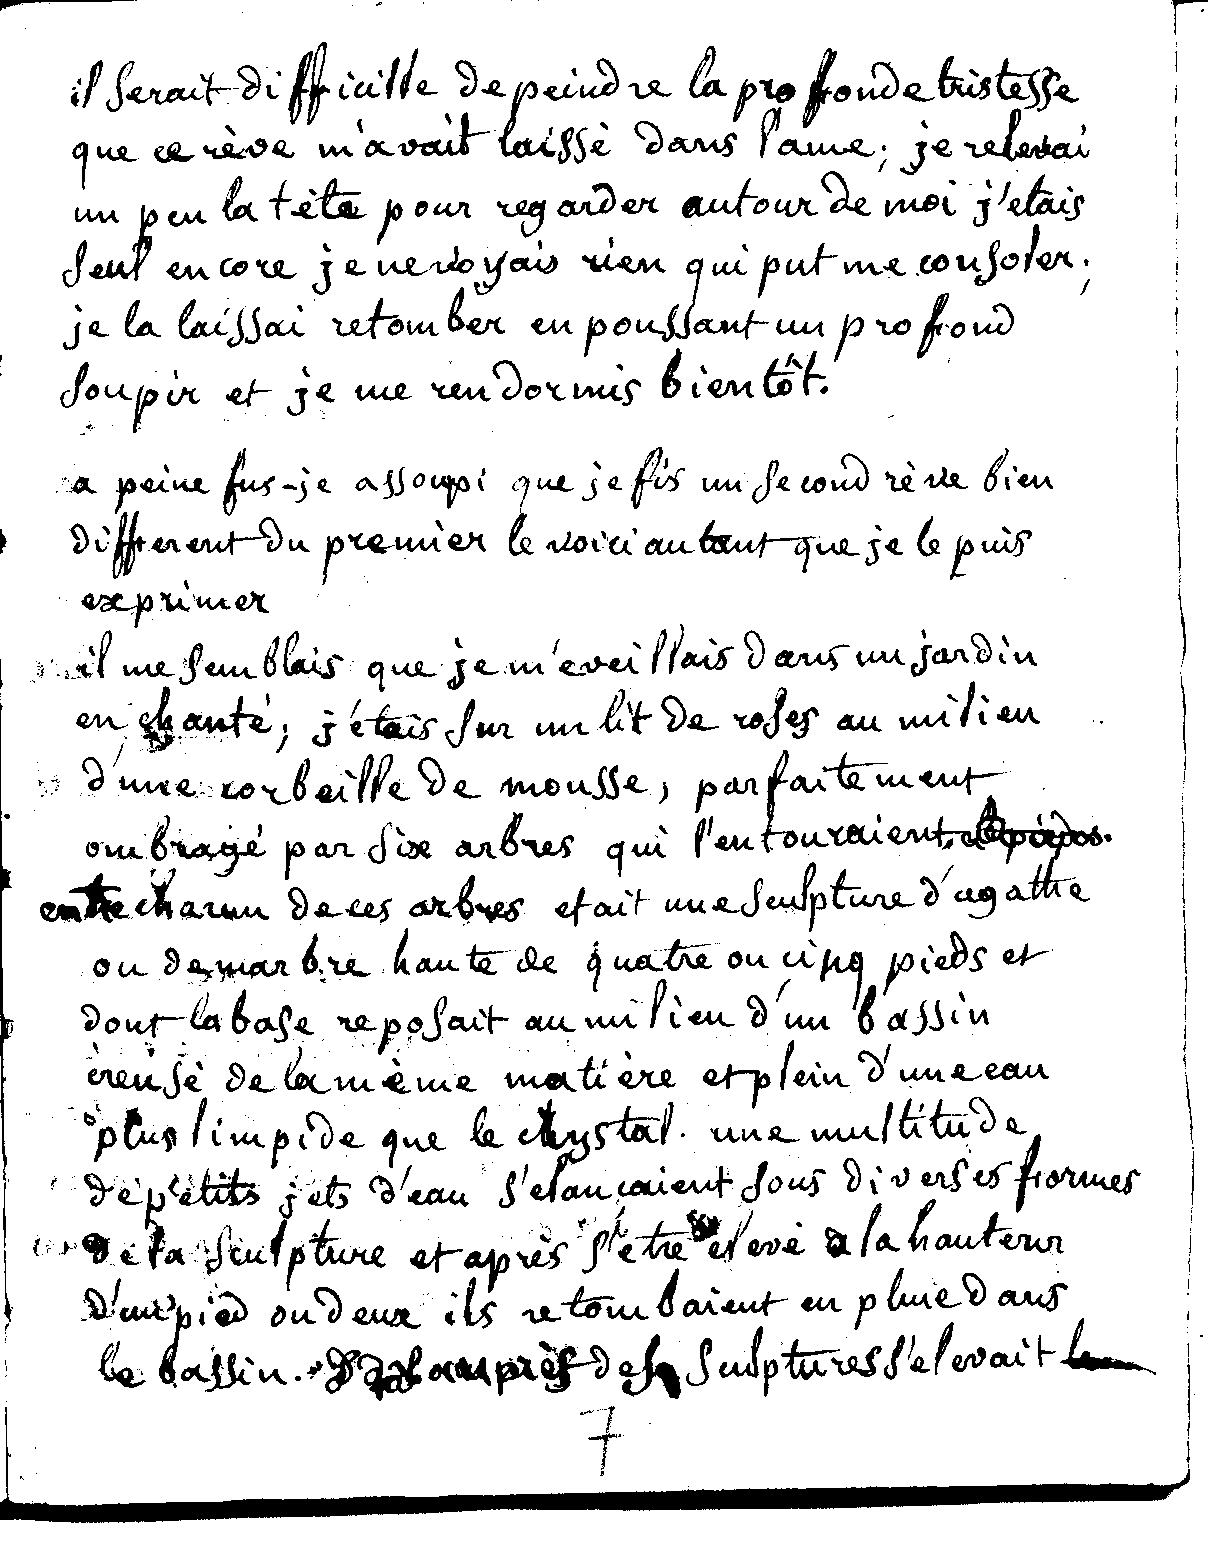 il serait difficille de peindre la profonde tristesse
que ce rève m'avait laissè dans l'ame; je relevai
un peu la tète pour regarder autour de moi j'etais
seul encore je ne voyais rien qui put me consoler;
je la laissai retomber en poussant un profond
soupir et je me rendormis bientôt.
a peine fus-je assoupi que je fis un second rève bien
different du premier le voici autant que je le puis
exprimer
il me semblais que je m'eveillais dans un jardin
enchanté; j'étais sur un lit de roses au milieu
d'une corbeille de mousse, parfaitement
ombragé par six arbres qui l'entouraient
entre chacun de ces arbres etait une sculpture d'agathe
ou de marbre haute de quatre ou cinq pieds et
dont la base reposait au milieu d'un bassin
creusè de la mème matière et plein d'une eau
plus limpide que le chrystal. une multitude
de petits jets d'eau s'elançaient sous diverses formes
de la sculpture et après s'etre elevé a la hauteur
d'un pied ou deux ils retombaient en pluie dans
le bassin. auprès des sculptures s'elevait
7